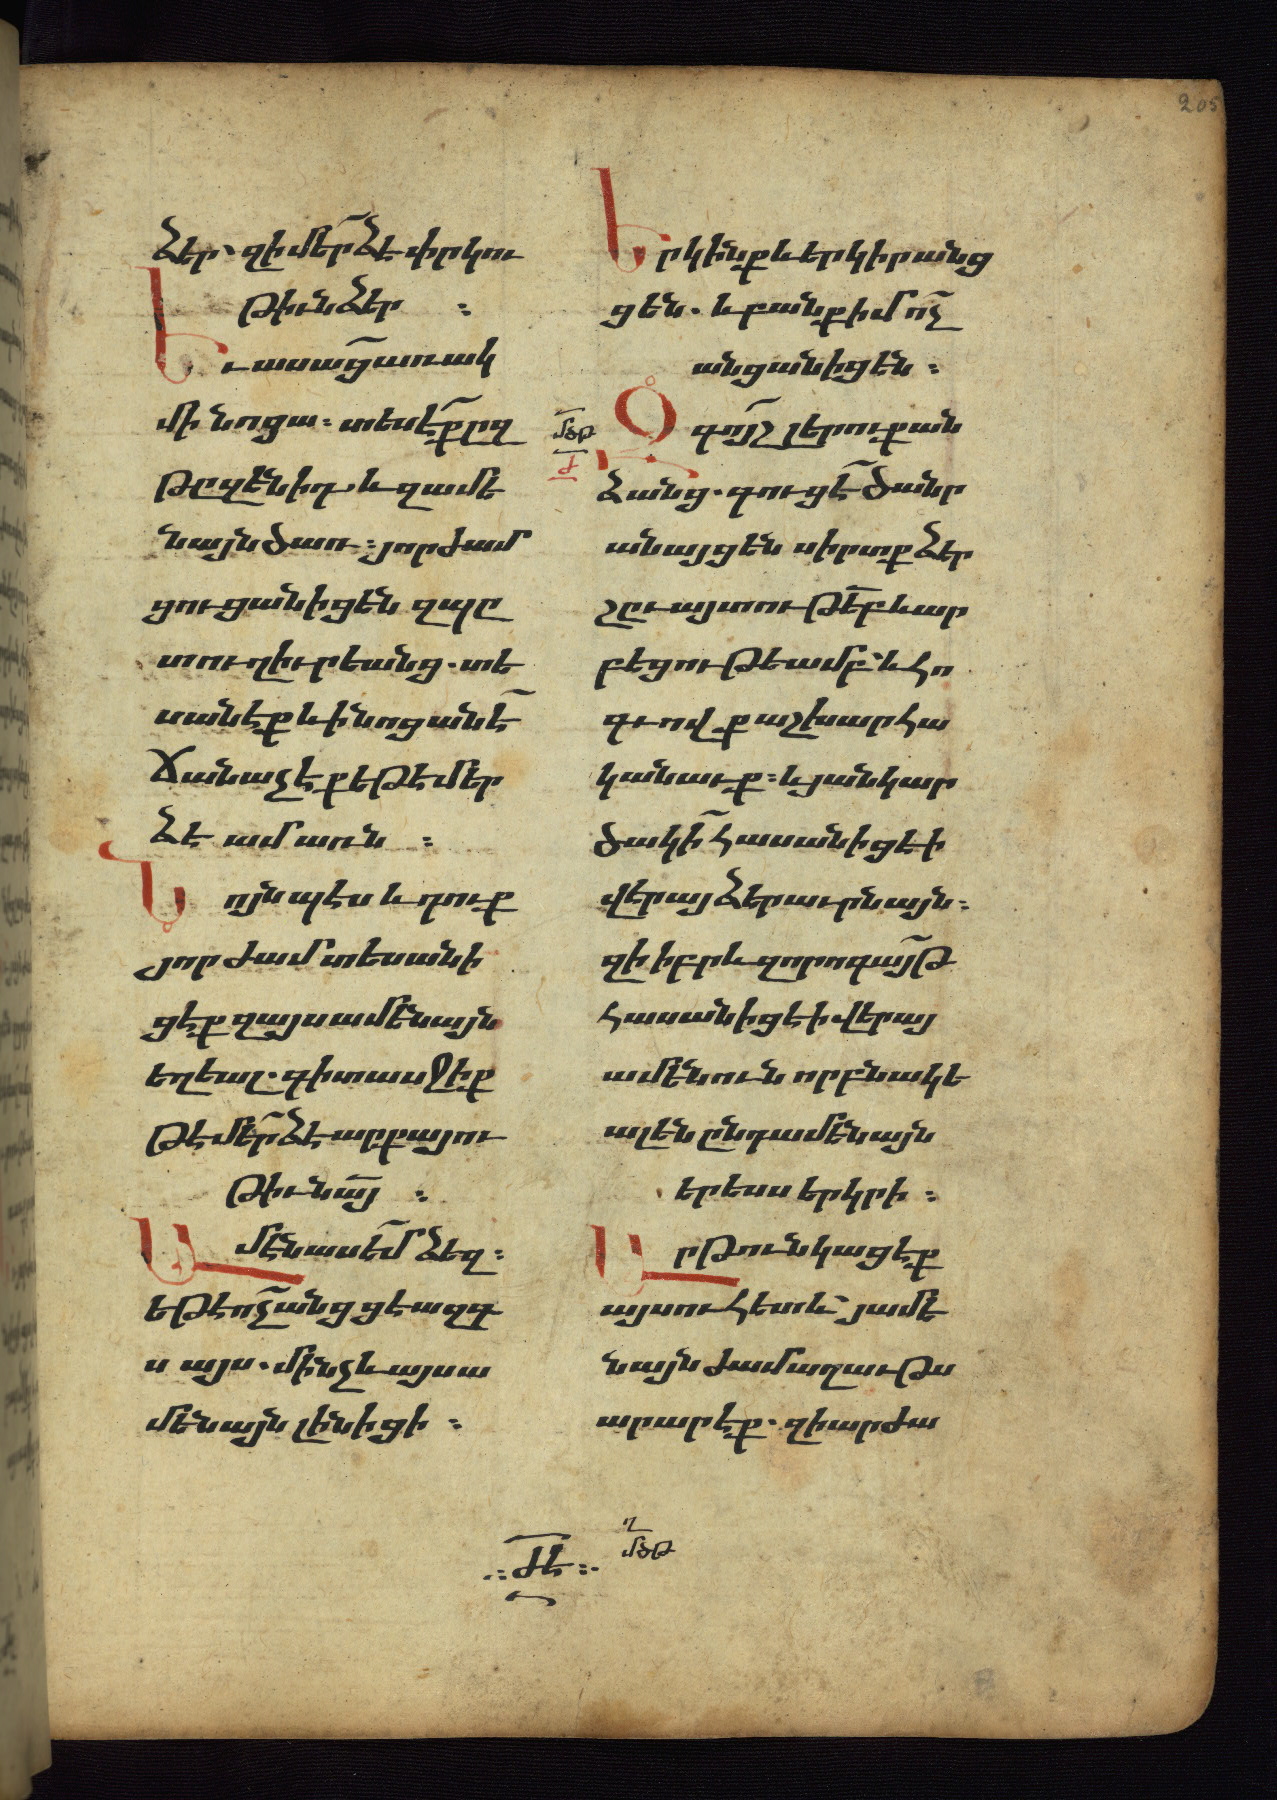 205
ձեր. զի մերձ է փրկու
թիւն ձեր :
Եւ ասաց առակ
մի նոցա : տեսէք զըզ
թըզենիդ. և զամե
նայն ծառ : յորժամ
ցուցանիցեն զպը
տուղ իւրեանց. տե
սանէք և ի նոցանէ
ճանաչէք եթէ մեր
ձ է ամառն :
Նոյնպէս և դուք
յորժամ տեսանի
ցէք զայս ամենայն
եղեալ. գիտասջիք
թէ մերձ է արքայու
թիւն այ :
Ամէն ասեմ ձեզ :
եթէ ոչ անցցէ ազգ
ս այս. մինչև այս ա
մենայն լինիցի :
Երկինք և երկիր անց
ցեն. և բանք իմ ոչ
անցանիցեն :
մծթ
Ժ
Զգոյշ լերուք ան
ձանց. գուցէ ծանր
անայցեն սիրտք ձեր
շըւայտութեբ և ար
բեցութեամբ և հո
գւովք աշխարհա
կանաւք : և յանկար
ծակի հասանիցէ ի
վերայ ձեր աւրն այն :
զի իբրև զորոգայթ
հասանիցէ ի վերայ
ամենուն որ բնակե
ալ են ընդ ամենայն
երեսս երկրի :
Արթուն կացէք
այսուհետև յամե
նայն ժամ աղաւթս
արարէք. զի արժա
ժէ
ղ
մծթ